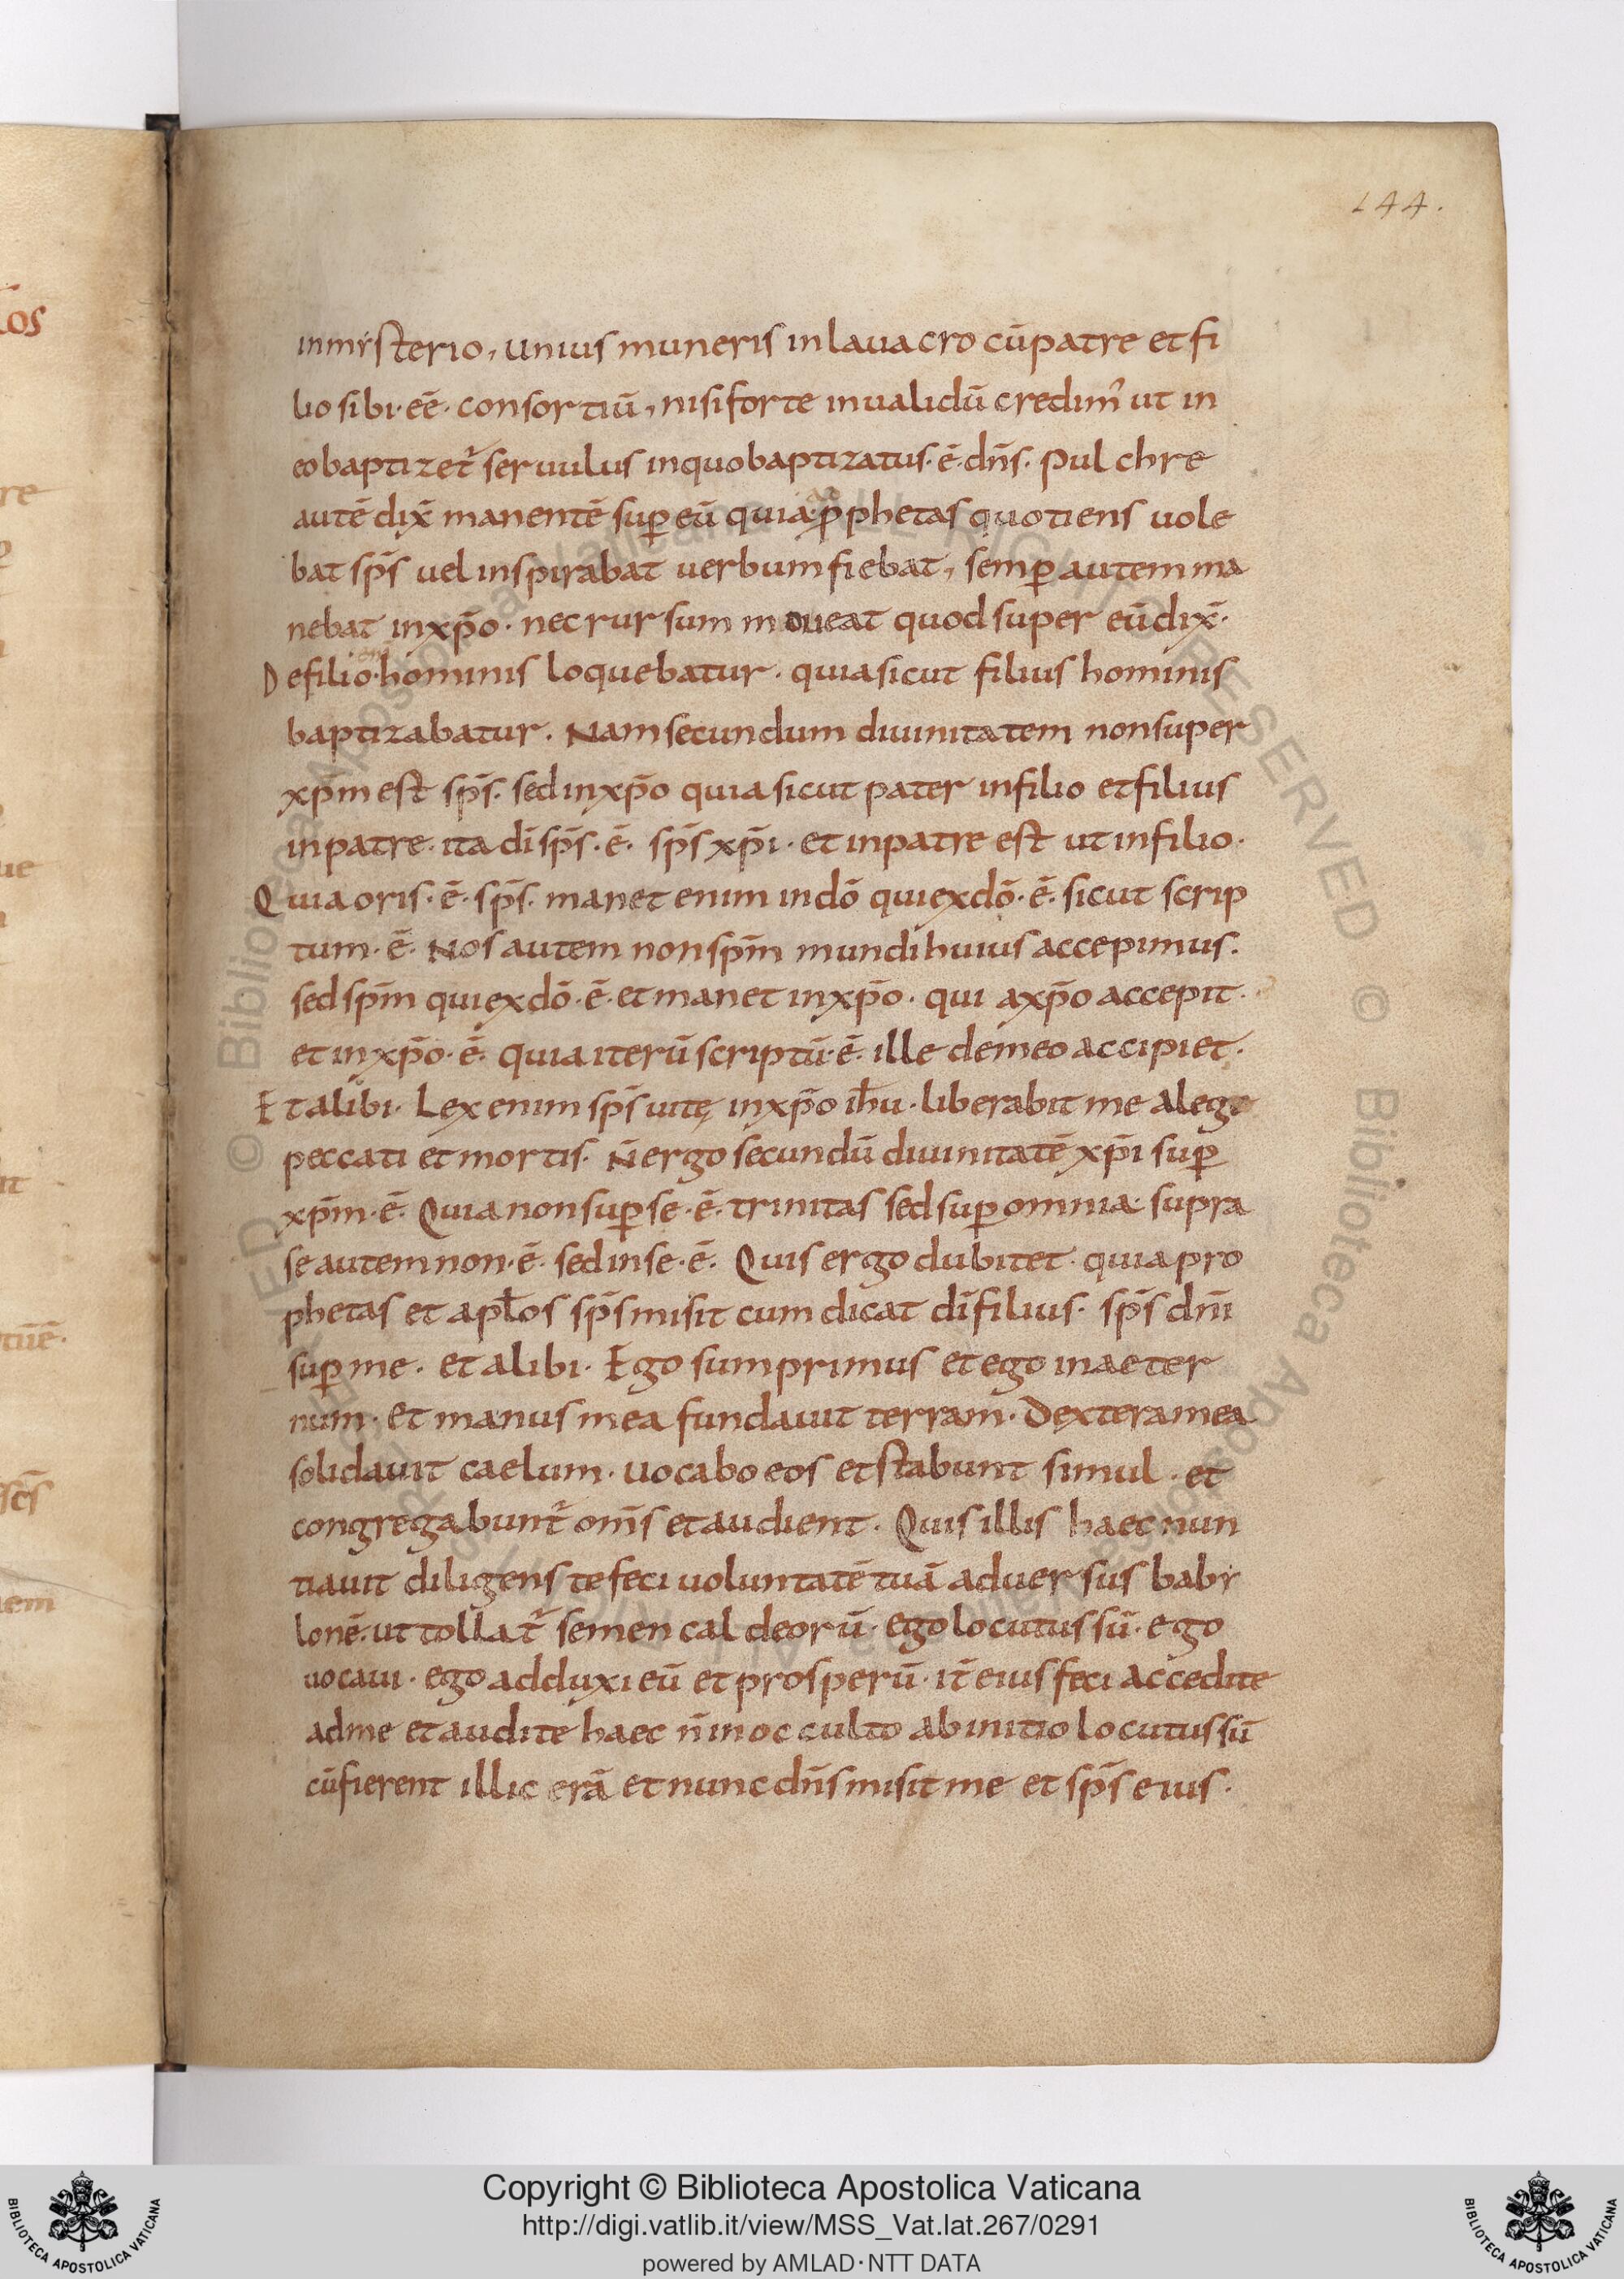 144.
in mysterio, unius muneris in lauacro cū patre et fi
lio sibi · eē · consortiū, nisi forte inualidū credim᷒ ut in
eo baptizet᷒ seruulus in quo baptizatus · ē · dn̄s · Pulchre
autē dix̄ manentē suꝑ eū quia ꝓphetas quotiens uole
bat sp̄s uel inspirabat uerbum fiebat, semꝑ autem ma
nebat in xp̄o · nec rursum moueat quod super eū dix̄ ·
De filio hominis loquebatur · quia sicut filius hominis
baptizabatur · Nam secundum diuinitatem non super
xp̄m est sp̄s · sed in xp̄o quia sicut pater in filio et filius
in patre · ita dī sp̄s · ē · sp̄s xp̄i · et in patre est ut in filio ·
Quia oris · ē · sp̄s · manet enim in dō qui ex dō · ē · sicut scrip
tum · ē · Nos autem non sp̄m mundi huius accepimus ·
sed sp̄m qui ex dō · ē · et manet in xp̄o · qui a xp̄o accepit ·
et in xp̄o · ē · quia iterū scriptū · ē · ille de meo accipiet ·
Et alibi · Lex enim sp̄s uitę in xp̄o ih̄u · liberabit me a lege
peccati et mortis · N̄ ergo secundū diuinitatē xp̄i suꝑ
xp̄m · ē · Quia non suꝑ se · ē · trinitas sed suꝑ omnia · supra
se autem non · ē · sed in se · ē · Quis ergo dubitet · quia pro
phetas et apl̄os sp̄s misit cum dicat dī filius · sp̄s dn̄i
suꝑ me · et alibi · Ego sum primus et ego in aeter
num · Et manus mea fundauit terram · Dextera mea
solidauit caelum · uocabo eos et stabunt simul · et
congregabunt᷒ om̄s et audient · Quis illis haec nun
tiauit diligens te feci uoluntatē tuā aduersus baby
lonē · ut tollat᷒ semen caldeorū · ego locutus sū · ego
uocaui · ego adduxi eū et prosperū · it̄ eius feci accedite
ad me et audite haec n̄ in occulto ab initio locutus sū
cū fierent illic erā et nunc dn̄s misit me et sp̄s eius ·
Copyright © Biblioteca Apostolica Vaticana
http://digi.vatlib.it/view/MSS_Vat.lat.267/0291
powered by AMLAD · NTT DATA
BIBLIOTECA APOSTOLICA VATICANA
BIBLIOTECA APOSTOLICA VATICANA